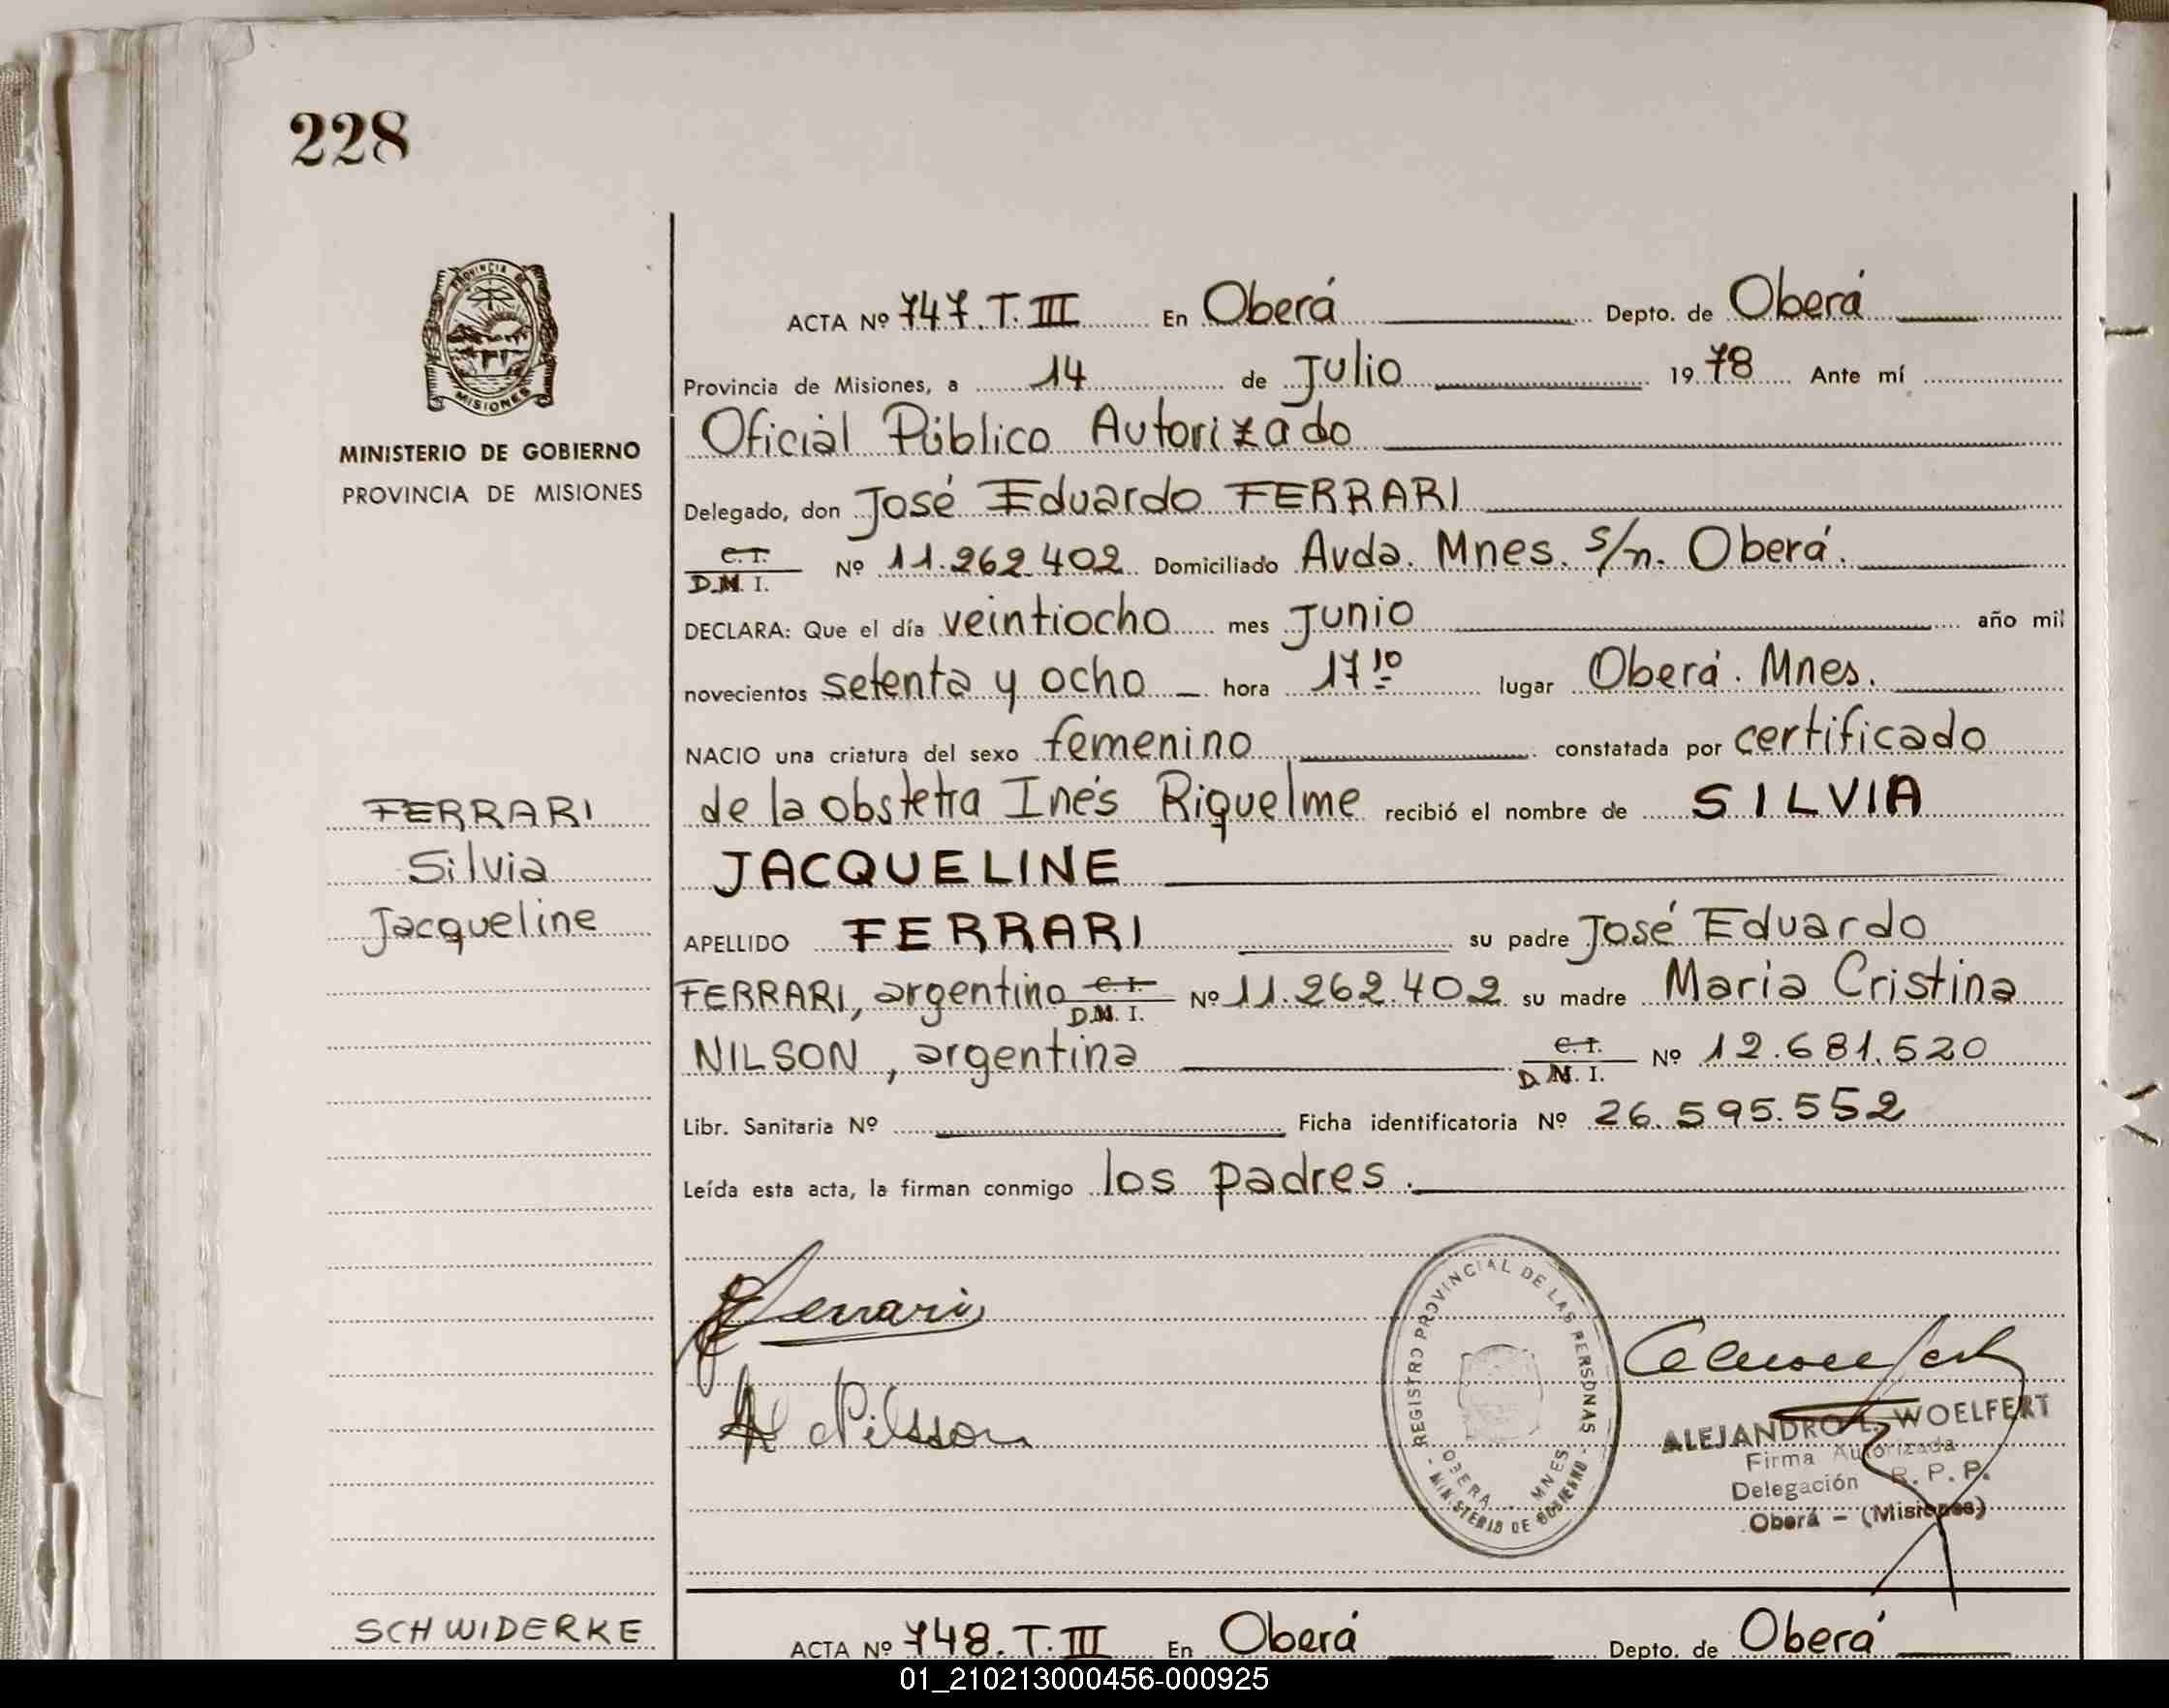 228
PROVINCIA DE
MISIONES
MINISTERIO DE GOBIERNO
PROVINCIA DE MISIONES
FERRARI
Silvia
Jacqueline
ACTA Nº 747.T.III En Oberá Depto. de Oberá
Provincia de Misiones, a 14 de Julio 1978 Ante mí
Oficial Público Autorizado
Delegado, don José Eduardo FERRARI
C.I.
D.N.I. Nº 11.262.402 Domiciliado Avda. Mnes. s/n. Oberá.
DECLARA: Que el día veintiocho mes Junio año mil
novecientos setenta y ocho hora 17 10 lugar Oberá. Mnes.
NACIO una criatura del sexo femenino constatada por certificado
de la obstetra Inés Riquelme recibió el nombre de SILVIA
JACQUELINE
APELLIDO FERRARI su padre José Eduardo
FERRARI, argentino C.I. D.N.I. Nº 11.262.402 su madre Maria Cristina
NILSON, argentina C.I. D.N.I. Nº 12.681.520
Libr. Sanitaria Nº Ficha identificatoria Nº 26.595.552
Leída esta acta, la firman conmigo los padres.
Ferrari
Nilsson
REGISTRO PROVINCIAL DE LAS PERSONAS
OBERA - MNES
- MINISTERIO DE GOBIERNO -
ALEJANDRO L. WOELFERT
Firma Autorizada
Delegación R.P.P.
Oberá - (Misiones)
SCHWIDERKE
ACTA Nº 748.T.III En Oberá Depto. de Oberá
01_210213000456-000925